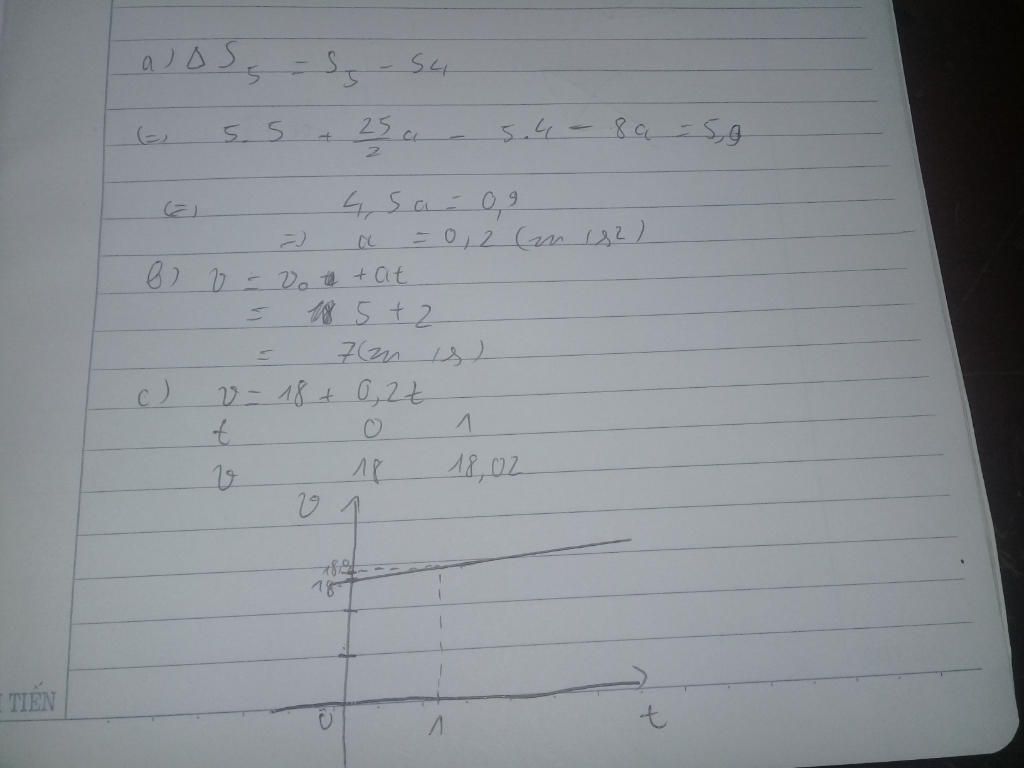 a) Δ S₅ = S₅ - S₄
(=) 5.5 + 25/2 a - 5.4 - 8a = 5,9
(=) 4,5a = 0,9
=) a = 0,2 (m/s²)
b) v = v₀ + at
= 5 + 2
= 7 (m/s)
c) v = 18 + 0,2t
t 0 1
v 18 18,02
v
18
0 1 t
TIẾN